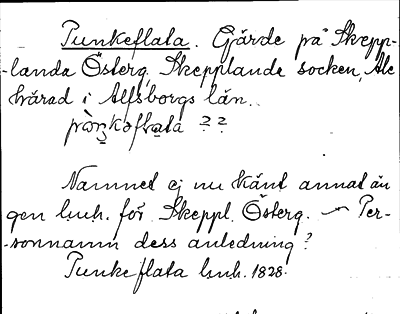 Punkeflata. Gärde på Skepp-
-landa Österg, Skepplanda socken, Ale
härad i Älfsborgs län.
??
Namnet ej nu känt annat än
gen l.u.h. för Skeppl. Österg. — Per-
-sonnamn dess anledning?
Punkeflata l.u.h. 1828.